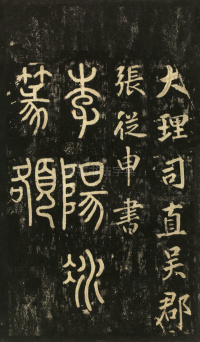 大理司直吴郡
張從申書
李陽冰
篆額